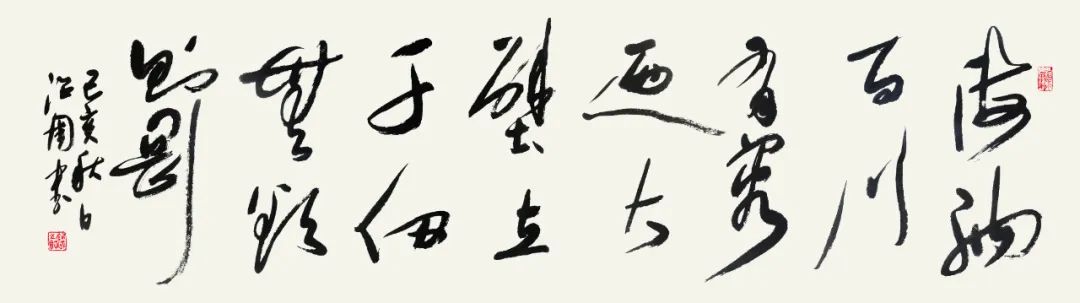 海納
百川
有容
迺大
壁立
千仞
無欲
則剛
己亥秋日
周書